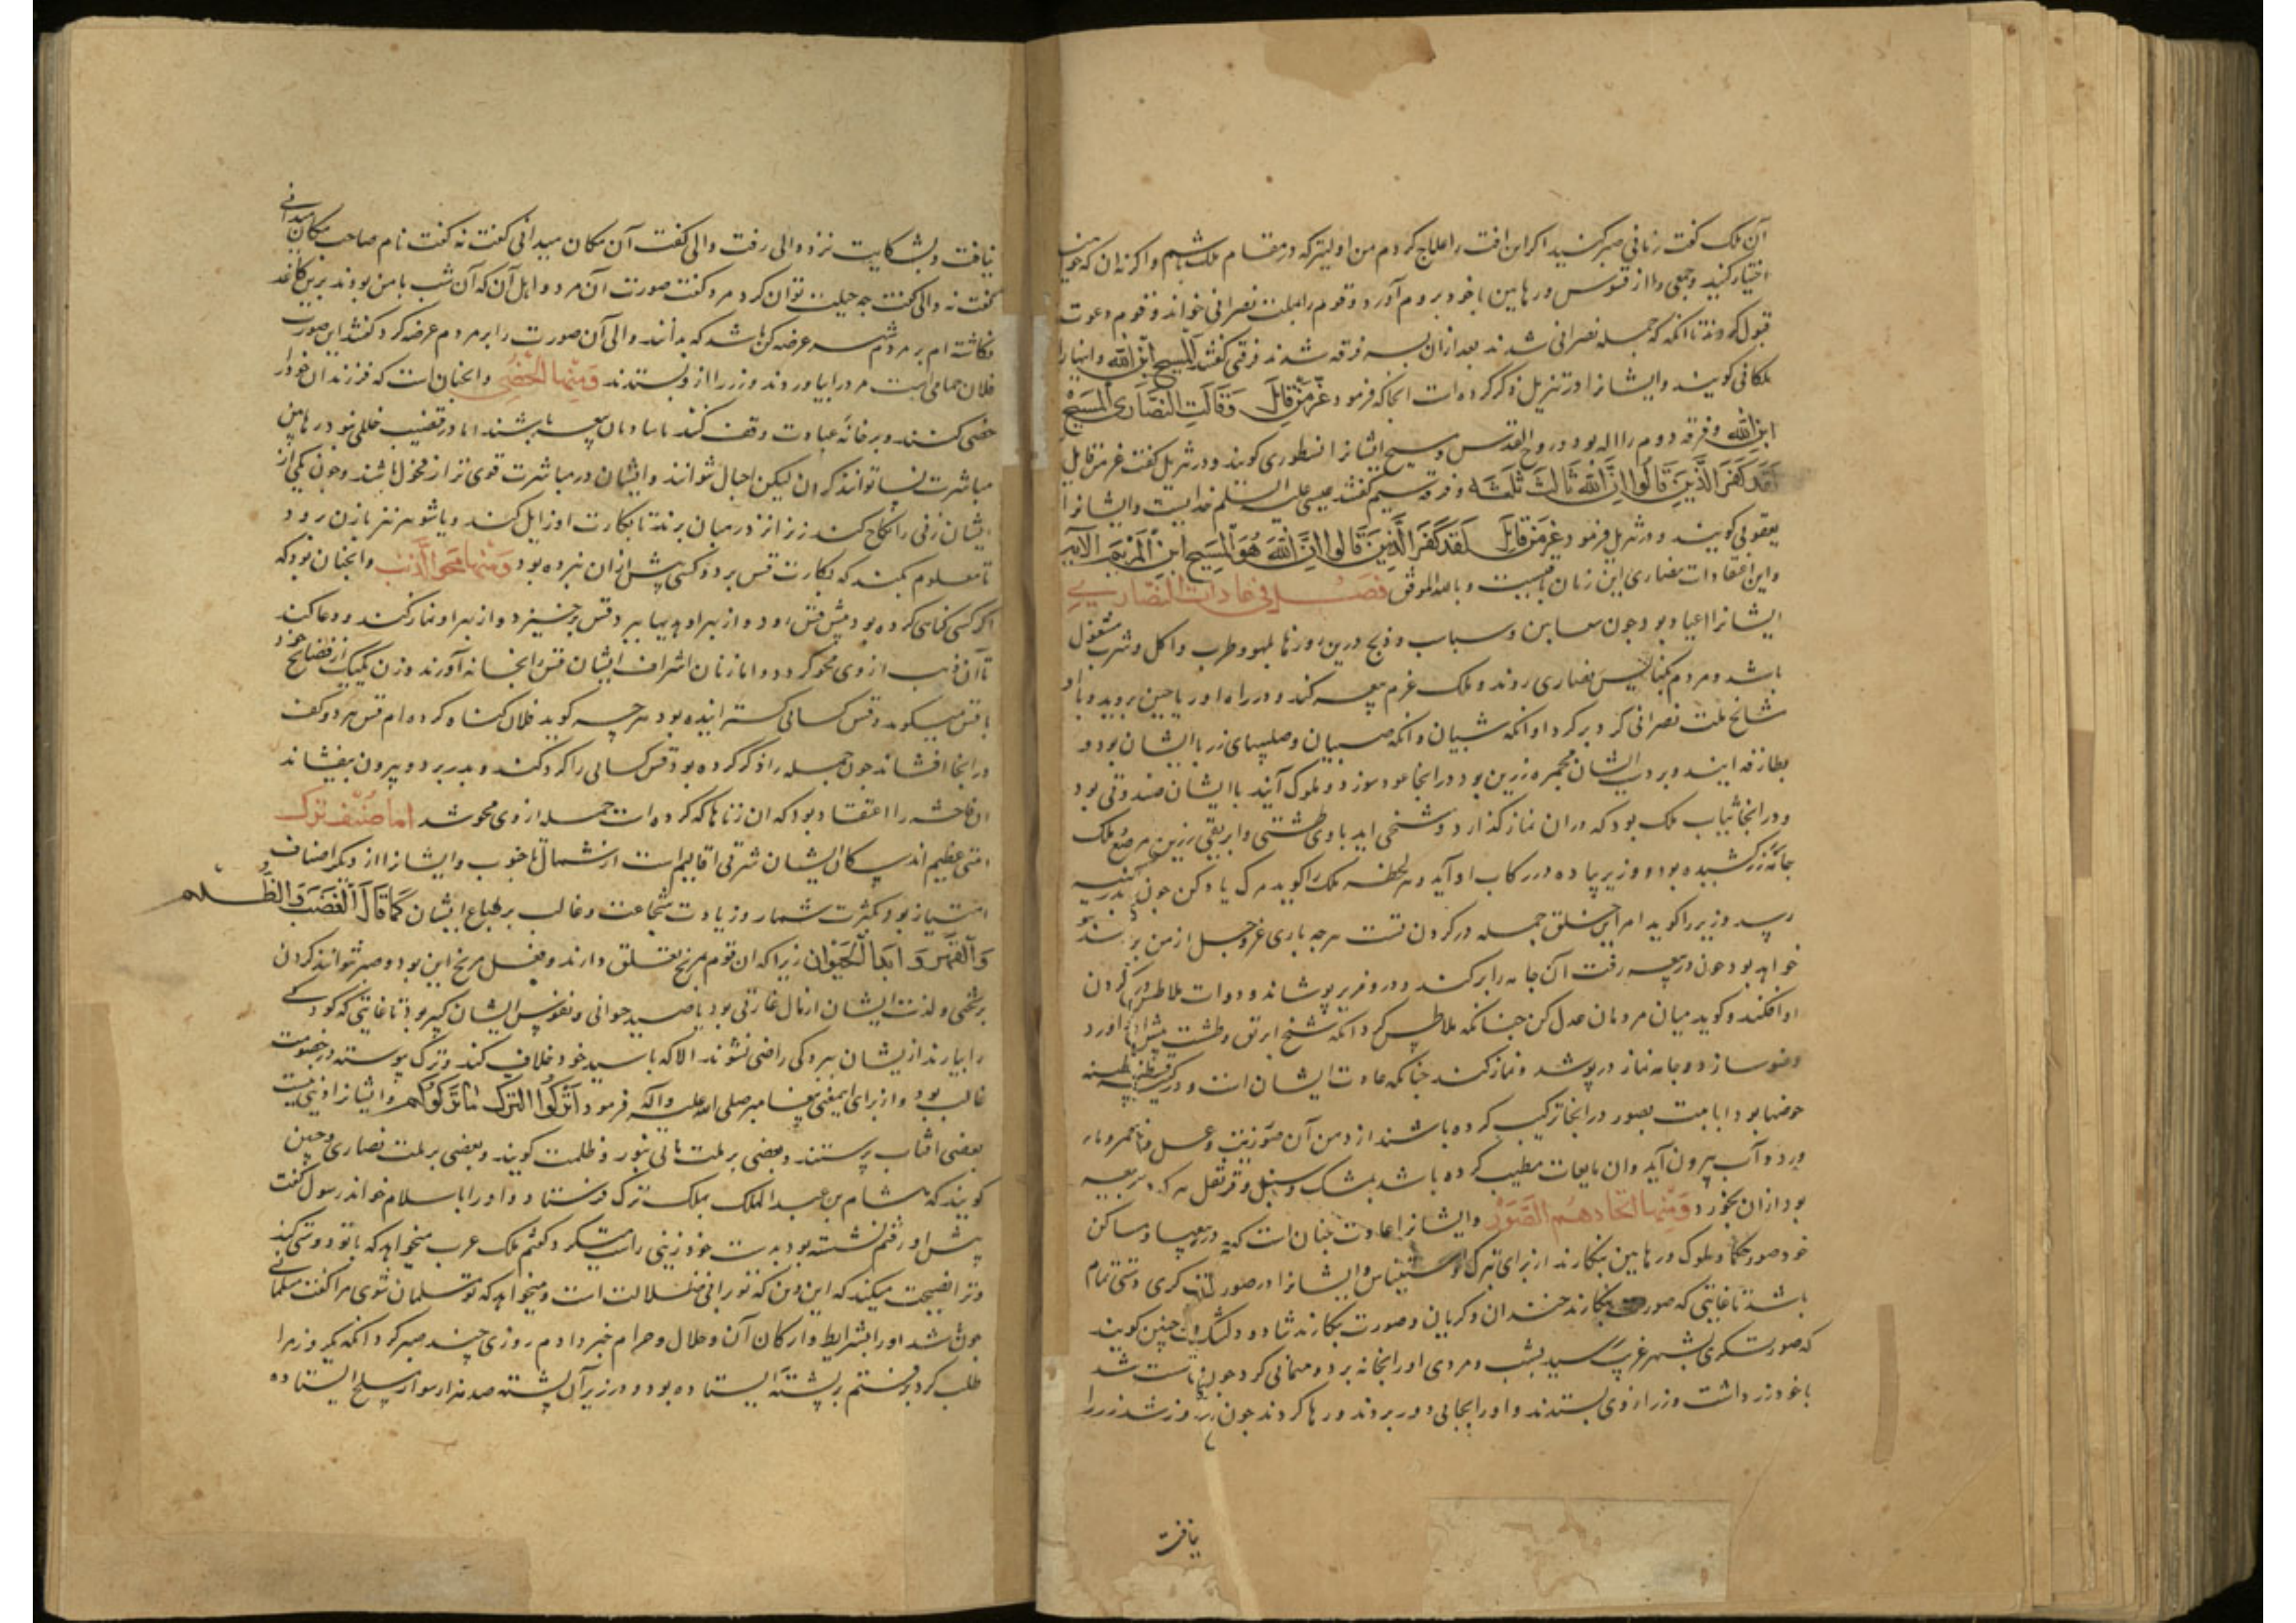 آن ملک گفت زمانی صبر کنید اگر این آفت را علاج کردم من اولیتر که در مقام ملک باشم و اگر نه آن که خواهید
اختیار کنید و جمعی را از قسوس و رهابین با خود بروم آورد و قوم را بملت نصرانی خواند و قوم دعوت
قبول کردند تا آنکه که جمله نصرانی شدند بعد از آن بسه فرقه شدند فرقی گفتند المسیح ابن الله و اینها را
ملکانی گویند و ایشانرا در تنزیل ذکر کرده است آنجا که فرمود عز من قائل وَقَالَتِ النَّصَارَی الْمَسِیحُ
ابن الله و فرقه دوم را اله بود و روح القدس و مسیح ایشانرا نسطوری گویند و در تنزیل گفت عز من قایل
لَقَد کَفَرَ الَّذینَ قَالُوا اِنَّ اللّهَ ثَالِثُ ثَلثَه و فرقه سیم گفتند عیسی علیه السلم خدایست و ایشانرا
یعقوبی گویند و در تنزیل فرمود عز من قایل لَقَد کَفَرَ الَّذِینَ قَالُوا اِنَّ اللهَ هُوَ المَسِیحُ ابنُ المَریَمَ الآیه
و این اعتقادات نصاری این زمان باقیست و بالله الموفق فصل فی عادات النصاری
ایشانرا اعیاد بود چون سعابین و سباب و ذبح درین روزها بلهو و طرب و اکل و شرب مشغول
باشد و مردم بکنایس نصاری روند و ملک عزم بیعه کند و در راه او ریاحین بروید و با او
مشایخ ملت نصرانی گرد بر گرد او آنکه شبان و آنکه صبیان و صلیبهای زر با ایشان بود و
بطارقه آیند و بر دست ایشان مجمره زرین بود در آنجا عود سوزد و ملوک آیند با ایشان صندوقی بود
و در آنجا ثیاب ملک بود که در آن نماز گذارد و شخصی آید با وی طشتی و ابریقی زرین مرصع ملک
جامه زر کشیده بود و وزیر پیاده در رکاب او آید و هر لحظه ملک را گوید مرگ یاد کن چون بدر کنیسه
رسد وزیر را گوید امر این خلق جمله در گردن تست هر چه باری عز و جل از من پرسد از تو
خواهد بود چون در بیعه رفت آن جامه را بر کند و دو حریر پوشاند و دوات ملاطس در گردن
او افکند و گوید میان مردمان عدل کن چنانکه ملاطس کرد آنکه شیخ ابریق و طشت پیش او آورد
وضو سازد و جامه نماز در پوشد و نماز کند چنانکه عادت ایشان است و در کنیسه قسطنطنیه
حوضها بود با بت بصور در آنجا ترکیب کرده باشند از دهن آن صور زیت و عسل و خمر و ماء
ورد و آب بیرون آید و آن مایعات مطیب کرده باشد بمشک و سنبل و قرنفل هر که در بیعه
بود از آن بخورد وَمِنهَا اتّخَاذهُم الصُّوَر و ایشانرا عادت چنان است که در بیعها و مساکن
خود صور حکما و ملوک و رهابین بنگارند از برای تبرک و استیناس و ایشانرا در صورتگری دستی تمام
باشد تا غایتی که صورت بنگارند خندان و گریان و صورت بنگارند شاد و دلتنگ و چنین گویند
که صورتگری بشهر غریب رسید بشب و مردی او را بخانه برد و مهمانی کرد چون مست شد
با خود زر داشت و زر از وی بستدند و او را بجایی دور بردند و رها کردند چون روز شد زر را
نیافت
نیافت و بشکایت نزد والی رفت والی گفت آن مکان میدانی گفت نه گفت نام صاحب مکان میدانی
گفت نه والی گفت چه حیلت توان کرد مرد گفت صورت آن مرد و اهل آن که آن شب با من بودند برین کاغذ
نگاشته ام بر مردم شهر عرضه کن باشد که بدانند والی آن صورت را بر مردم عرضه کرد گفتند این صورت
فلان حمامی است مرد را بیاوردند و زر را از و بستدند وَمِنهَا الخَصی و آنچنان است که فرزندان خود را
خصی کنند و بر خانه عبادت وقف کنند تا سادمان بیعه باشند اما در قضیب خللی نبود رهابین
مباشرت نسا توانند کردن لیکن احبال نتوانند و ایشان در مباشرت قوی تر از فحول باشند و چون یکی از
ایشان زنی را نکاح کند زن را نزد رهبان برند تا بکارت او زایل کند و با شوهر نیز با زن رود
تا معلوم کند که بکارت قس برد و کسی پیش از آن نبرده بود وَمِنهَا مَحو الذَّنب و آنچنان بود که
اگر کسی گناهی کرده بود پیش قس رود و از بهر او هدیها ببرد قس برخیزد و از بهر او نماز کند و دعا کند
تا آن ذنب از وی محو گردد و اما زنان اشراف ایشان قس را بخانه آورند و زن یکیک از فضایح خود
با قس میگوید و قس کسائی گسترانیده بود هر چه گوید فلان گناه کرده ام قس هر دو کف
در آنجا افشاند چون جمله را ذکر کرده بود قس کسائی را گرد کند و بدر برد و بیرون بیفشاند
آن فاحشه را اعتقاد بود که آن زناها که کرده است جمله از وی محو شد اما صنف ترک
امتی عظیم اند مسکان ایشان شرقی اقالیم است از شمال تا جنوب و ایشانرا از دیگر اصناف
امتیاز بود بکثرت شمار و زیادت شجاعت و غالب بر طباع ایشان کَمَا قَالَ الغَضَب وَ الظُّلم
وَ القَهر وَ ایذا الحَیَوان زیرا که آن قوم بمریخ تعلق دارند و فعل مریخ این بود و صبر توانند کردن
بر تحمی و لذت ایشان از مال غارتی بود یا صید حیوانی و نفوس ایشان کبیر بود تا غایتی که کودکی
را بیارند از یشان ببردگی راضی نشوند الا که با سید خود خلاف کند و ترک پیوسته در خصومت
غالب بود و از برای این معنی پیغامبر صلی الله علیه و آله فرمود اُترُکُوا التُرکَ مَاتَرَکُوکُم و ایشانرا دینی نیست
بعضی آفتاب پرستند و بعضی بر ملت مانی بنور و ظلمت گویند و بعضی بر ملت نصاری و چنین
گویند که هشام بن عبد الملک بملک ترک فرستاد و او را با سلام خواند رسول گفت
پیش او رفتم نشسته بود بدست خود زینی راست میکرد گفتم ملک عرب میخواهد که با تو دوستی کند
و ترا نصیحت میکند که این دین که تو رانی ضلالت است و میخواهد که تو مسلمان شوی مرا گفت مسلمانی
چون باشد او را بشرایط و ارکان آن و حلال و حرام خبر دادم روزی چند صبر کرد آنکه یک روز مرا
طلب کرد برفتم بر پشته ایستاده بود و در زیر آن پشته صد هزار سوار مسلح ایستاده